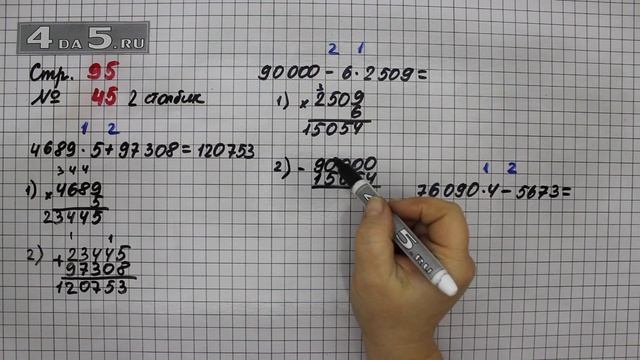 4DA5.RU
Стр. 95
№ 45 2 столбик
1 2
4689·5+97308=120753
1) 3 4 4
× 4689
5
23445
2) 1 1
+ 23445
97308
120753
2 1
90000-6·2509=
1) 3
× 2509
6
15054
2) - 90000
1 2
76090·4-5673=